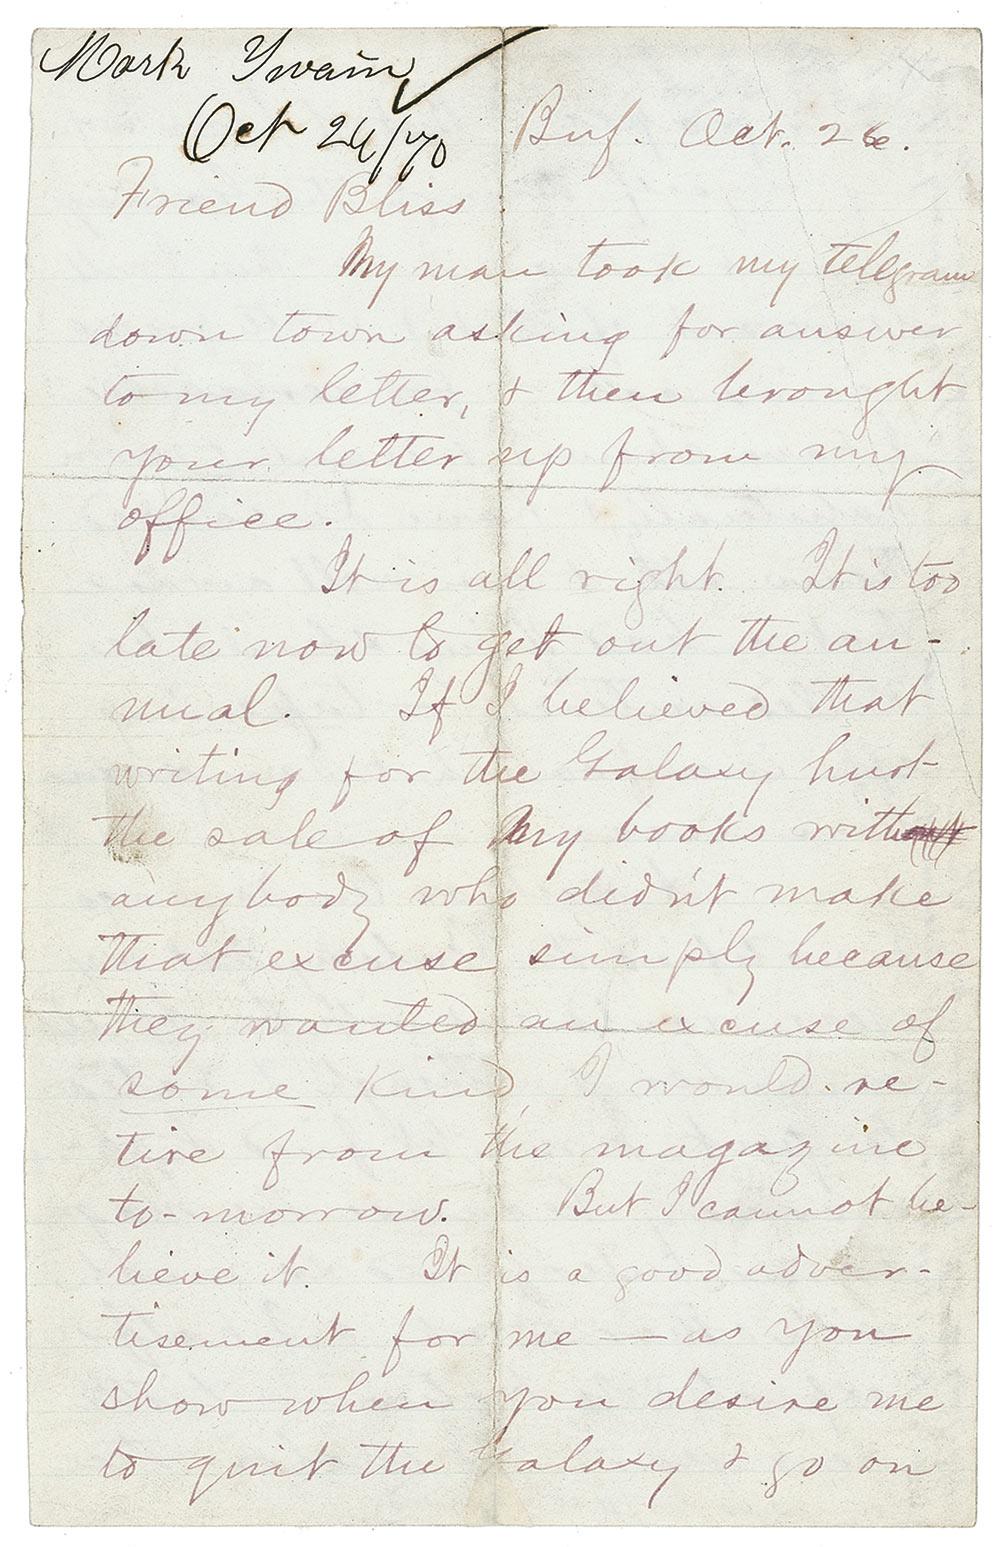 Mark Twain
Oct 26/70
Buf. Oct. 26.
Friend Bliss
My man took my telegram
down town asking for answer
to my letter, & then brought
your letter up from my
office.
It is all right. It is too
late now to get out the an-
nual. If I believed that
writing for the Galaxy hurt
the sale of my books with
anybody who didn't make
that excuse simply because
they wanted an excuse of
some kind, I would re-
tire from the magazine
to-morrow. But I cannot be-
lieve it. It is a good adver-
tisement for me — as you
show when you desire me
to quit the Galaxy & go on